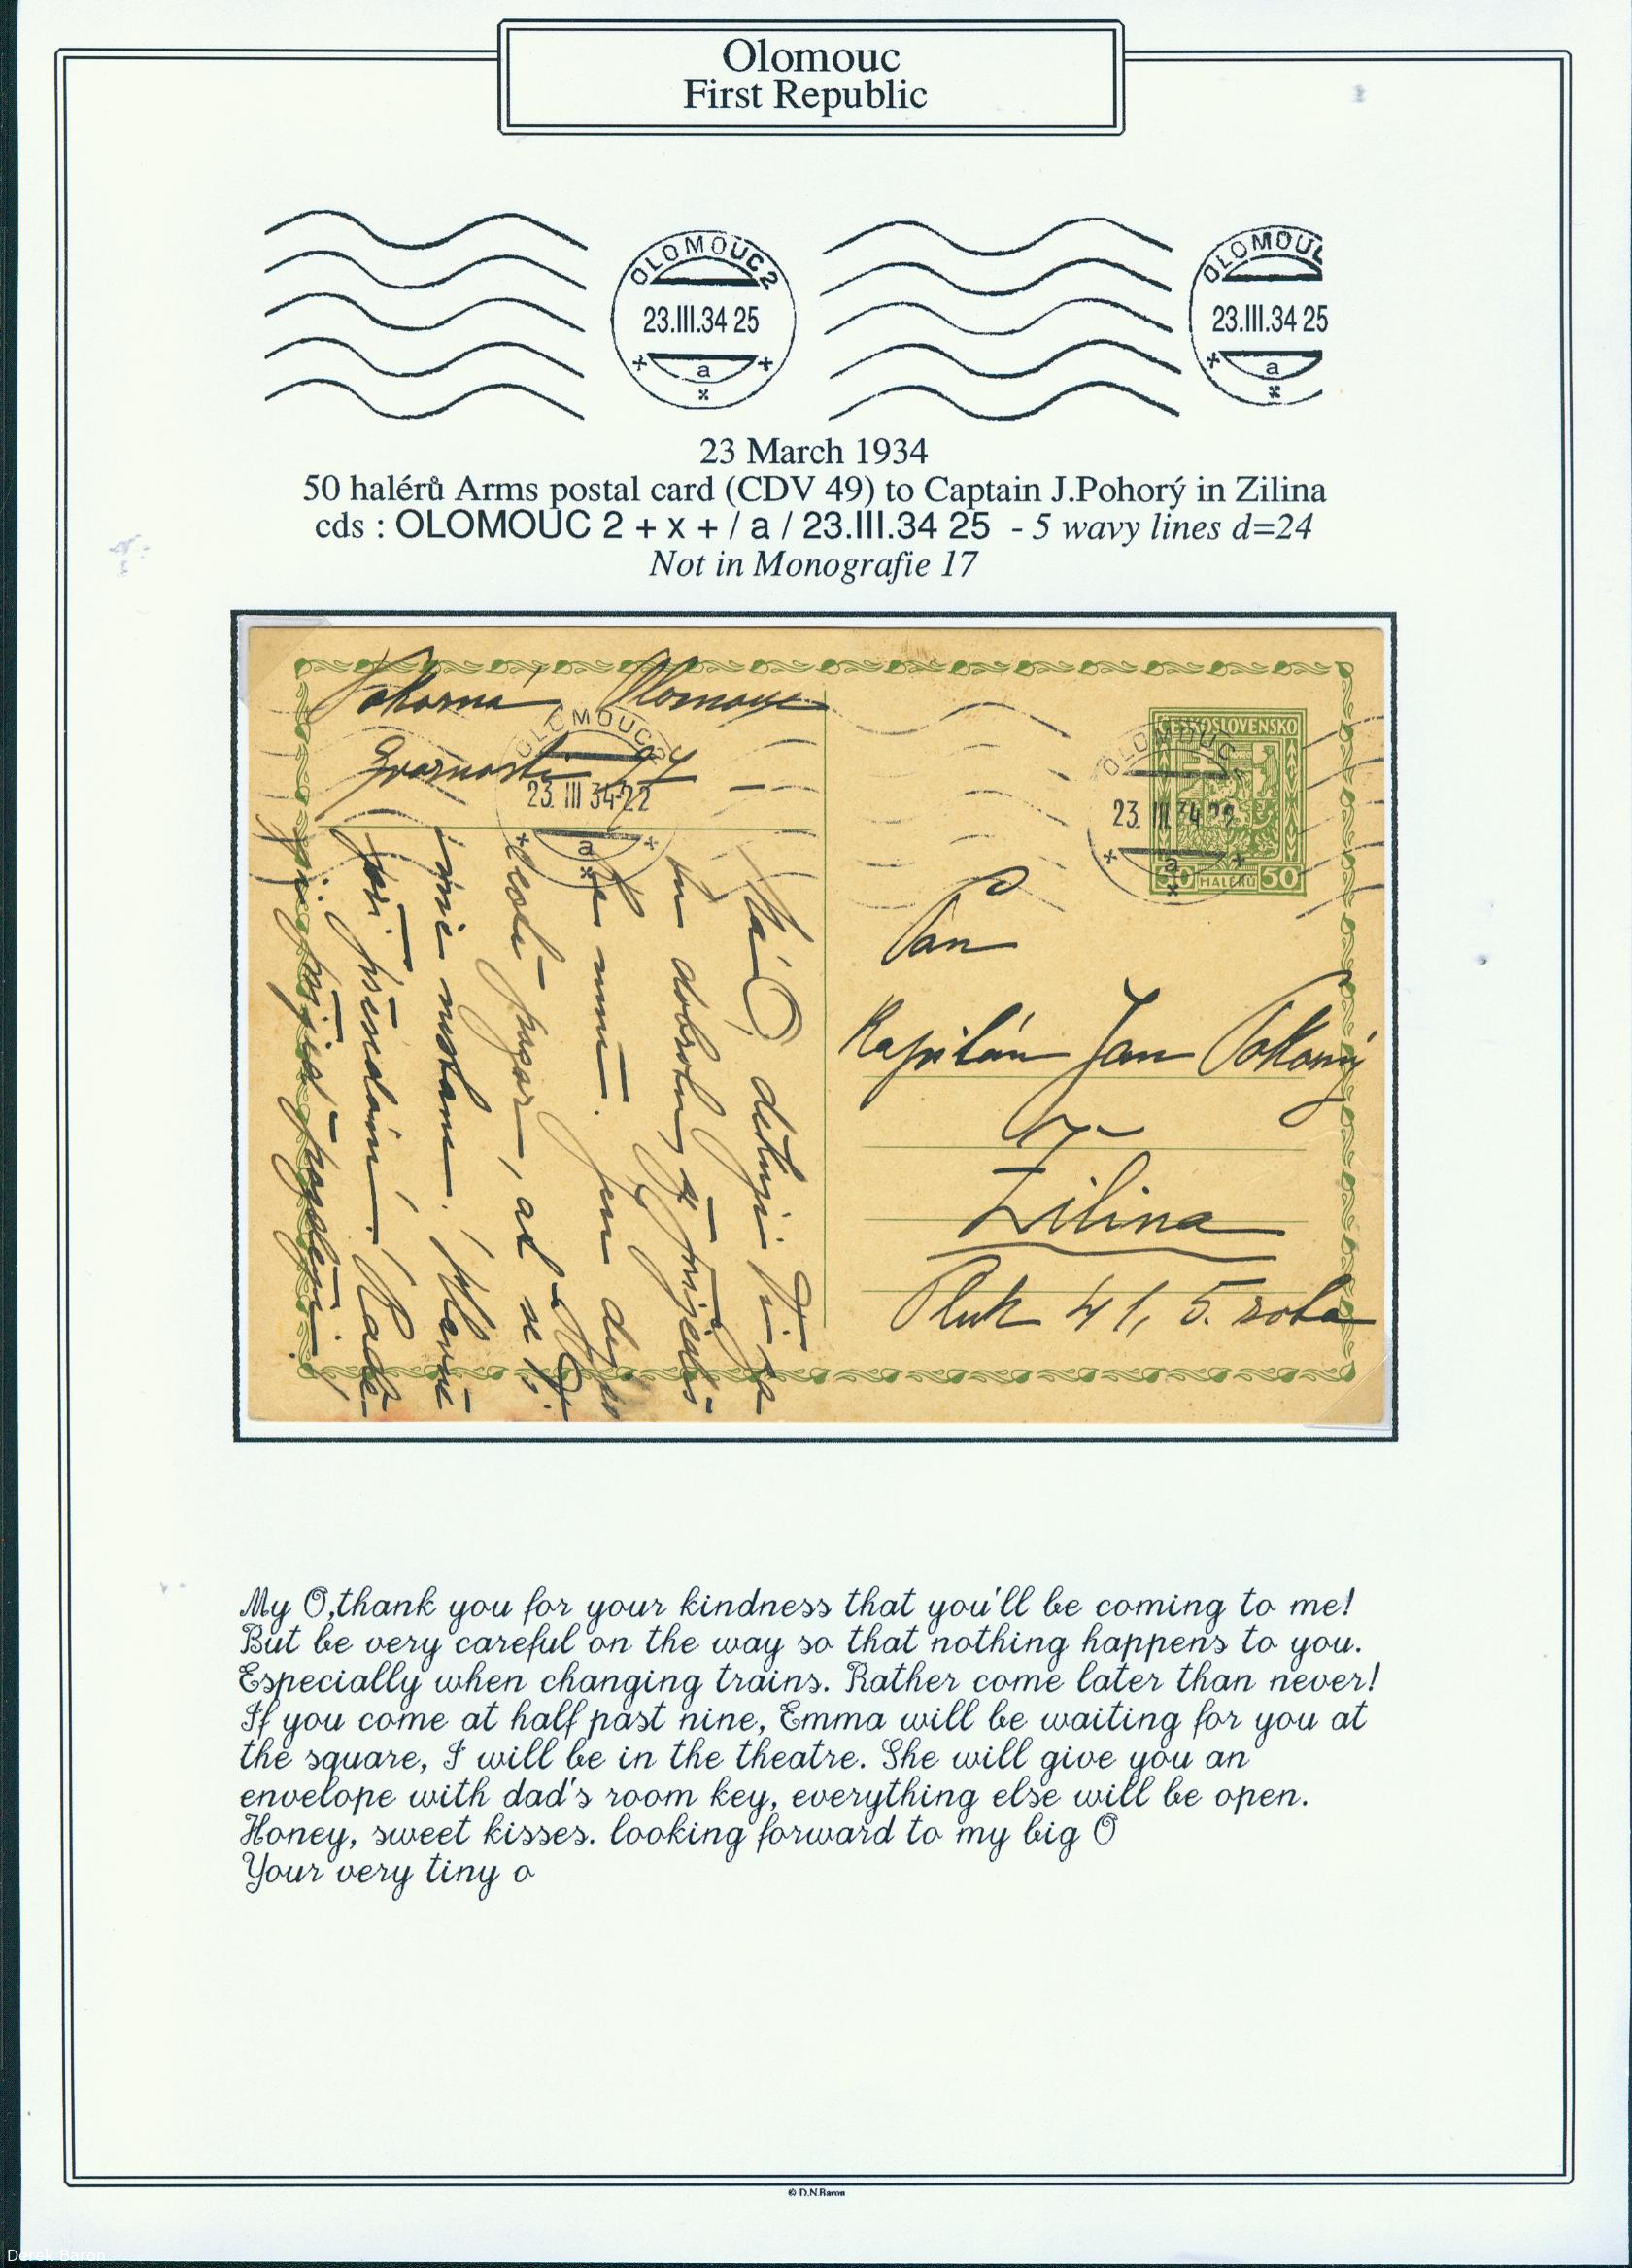 Olomouc
First Republic
OLOMOUC 2
23.III.34 25
a
OLOMOUC
23.III.34 25
a
23 March 1934
50 halérů Arms postal card (CDV 49) to Captain J.Pohorý in Zilina
cds : OLOMOUC 2 + x + / a / 23.III.34 25 - 5 wavy lines d=24
Not in Monografie 17
Pokorná, Olomouc
OLOMOUC 2
23. III 34-22
a
ČESKOSLOVENSKO
50 HALÉŘŮ 50
OLOMOUC
23. III 34-22
a
Pan
Kapitán Jan Pokorný
v
Žilina
Pluk 41, 5. rota
Má O, děkuji Ti za
tu dobrotu, že přijedeš
ke mně. Jen dej
pozor, ať se Ti
nic nestane. Hlavně
při přesedání. Raději
přijeď později
My O,thank you for your kindness that you'll be coming to me!
But be very careful on the way so that nothing happens to you.
Especially when changing trains. Rather come later than never!
If you come at half past nine, Emma will be waiting for you at
the square, I will be in the theatre. She will give you an
envelope with dad's room key, everything else will be open.
Honey, sweet kisses. looking forward to my big O
Your very tiny o
© D.N.Baron
Derek Baron